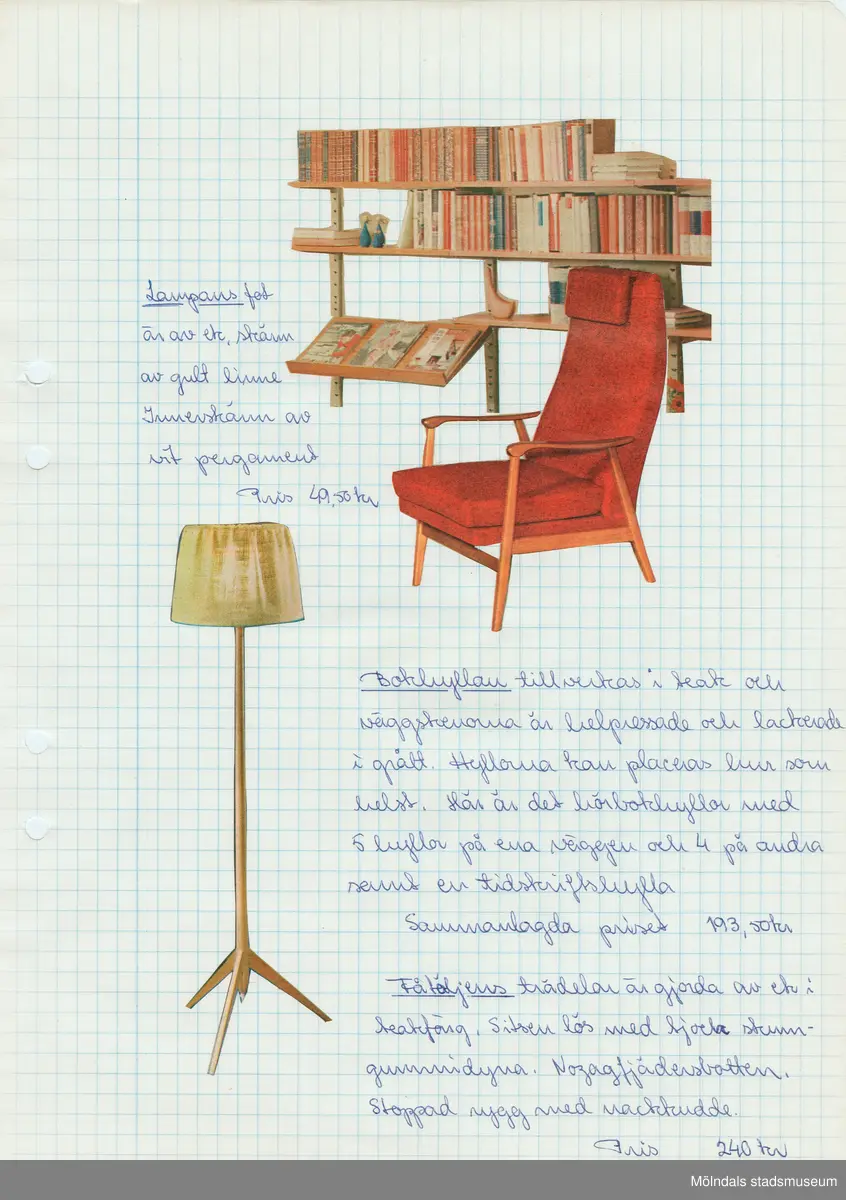 Lampans fot
är av ek, skärm
av gult linne
Innerskärm av
vit pergament
Pris 49,50 kr
Bokhyllan tillverkas i teak och
väggskenorna är helpressade och lackerade
i grått. Hyllorna kan placeras hur som
helst. Här är det hörbokhyllor med
5 hyllor på ena väggen och 4 på andra
samt en tidskriftshylla
Sammanlagda priset 193,50kr
Fåtöljens trädelar är gjorda av ek i
teakfärg. Sitsen lös med tjock skum-
gummidyna. Nozagfjädersbotten.
Stoppad rygg med nackkudde.
Pris 240 kr
Mölndals stadsmuseum